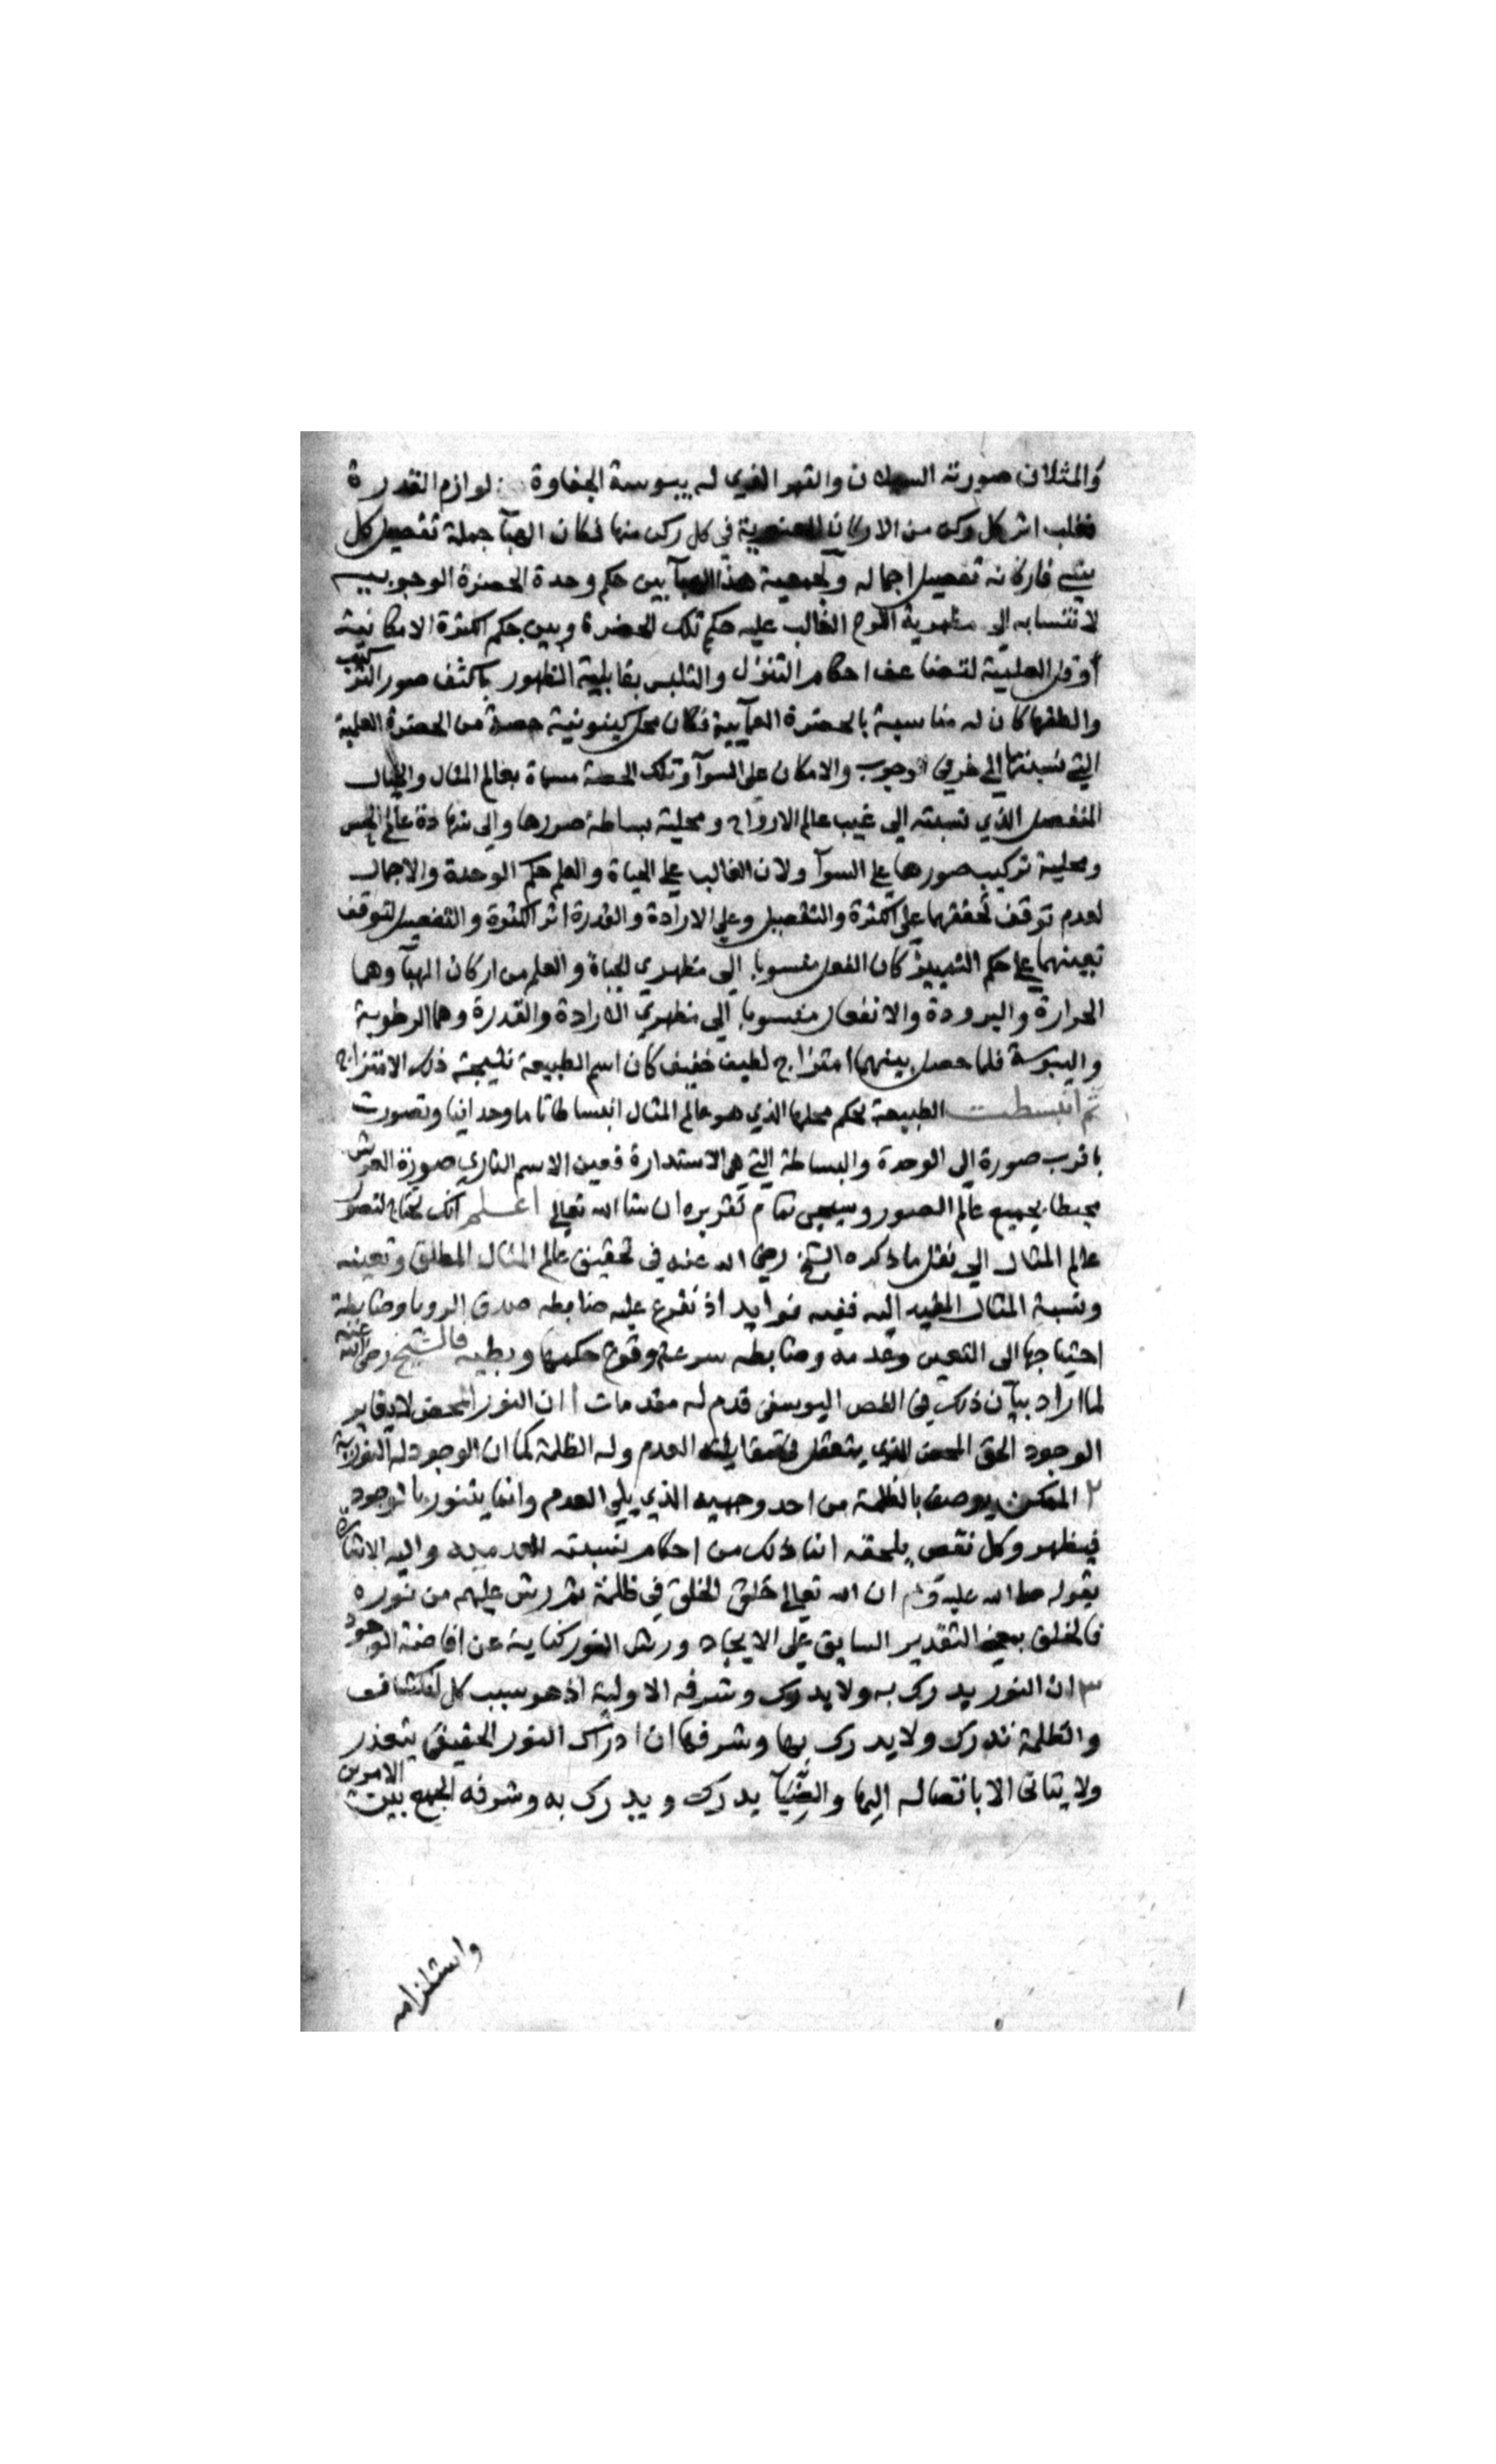 والمثلان صورته السيلان والقهر الذي له يبوسة الجفاوة لوازم القدرة
فغلب اثر كل ركن من الاركان المعنوية في كل ركن منها فكان الهبآ جملة تفصيل كل
شي فاركانه تفصيل اجماله ولجمعية هذا الهبآ بين حكم وحدة الحضرة الوجوبيه
لانتسابه الي مظهرية اللوح الغالب عليه حكم تلك الحضرة وبين حكم الكثرة الامكانية
او قل العلمية لتضاعف احكام التنزل والتلبس بقابلية الظهور باكثف صور التركيب
والطفها كان له مناسبة بالحضرة العمآيية فكان محل كينونية حصة من الحضرة العلمية
التي نسبتها الي طرفي الوجوب والامكان علي السوآ وتلك الحصة مسماة بعالم المثال والخيال
المنفصل الذي نسبته الي غيب عالم الارواح ومحلية بساطة صورها والي شهادة عالم الحس
ومحلية تركيب صورها علي السوآ ولان الغالب علي الحياة والعلم حكم الوحدة والاجمال
لعدم توقف تحققهما علي الكثرة والتفصيل وعلي الارادة والقدرة اثر الكثرة والتفصيل لتوقف
تعينهما علي حكم التمييز كان الفعل منسوبا الي مظهري الحياة والعلم من اركان الهبآ وهما
الحرارة والبرودة والانفعال منسوبا الي مظهري الارادة والقدرة وهما الرطوبة
واليبوسة فلما حصل بينهما امتزاج لطيف خفيف كان اسم الطبيعة نتيجة ذلك الامتزاج
ثم انبسطت الطبيعة بحكم محلها الذي هو عالم المثال انبساطا تاما وحدانيا وتصورت
باقرب صورة الي الوحدة والبساطة التي هي الاستدارة فعين الاسم الباري صورة العرش
محيطا بجميع عالم الصور وسيجي تمام تقريره ان شا الله تعالي اعلم انك تحتاج لتصور
عالم المثال الي نقل ما ذكره الشيخ رضي الله عنه في تحقيق عالم المثال المطلق وتعينه
ونسبة المثال المقيد اليه ففيه فوايد اذ تفرع عليه ضابطه صدق الرويا وضابطة
احتياجها الي التعبير وعدمه وضابطه سرعة وقوع حكمها وبطيه فالشيخ رضي الله عنه
لما اراد بيان ذلك في الفص اليوسفي قدم له مقدمات ا ان النور المحض لا يغاير
الوجود الحق المحض الذي يتعقل في مقابلته العدم وله الظلمة كما ان الوجود له النورية
٢ الممكن يوصف بالظلمة من احد وجهيه الذي يلي العدم وانما يتنور بالوجود
فيظهر وكل نقص يلحقه انما ذلك من احكام نسبته العدميه واليه الاشارة
بقوله صلي الله عليه وسلم ان الله تعالي خلق الخلق في ظلمة ثم رش عليهم من نوره
فالخلق بمعني التقدير السابق علي الايجاد ورش النور كناية عن افاضة الوجود
٣ ان النور يدرك به ولا يدرك وشرفه الاولية اذ هو سبب كل انكشاف
والظلمة تدرك ولا يدرك بها وشرفها ان ادراك النور الحقيقي يتعذر
ولا يتاتي الا باتصاله اليها والضيآ يدرك ويدرك به وشرفه الجمع بين الامرين
واستلزامه